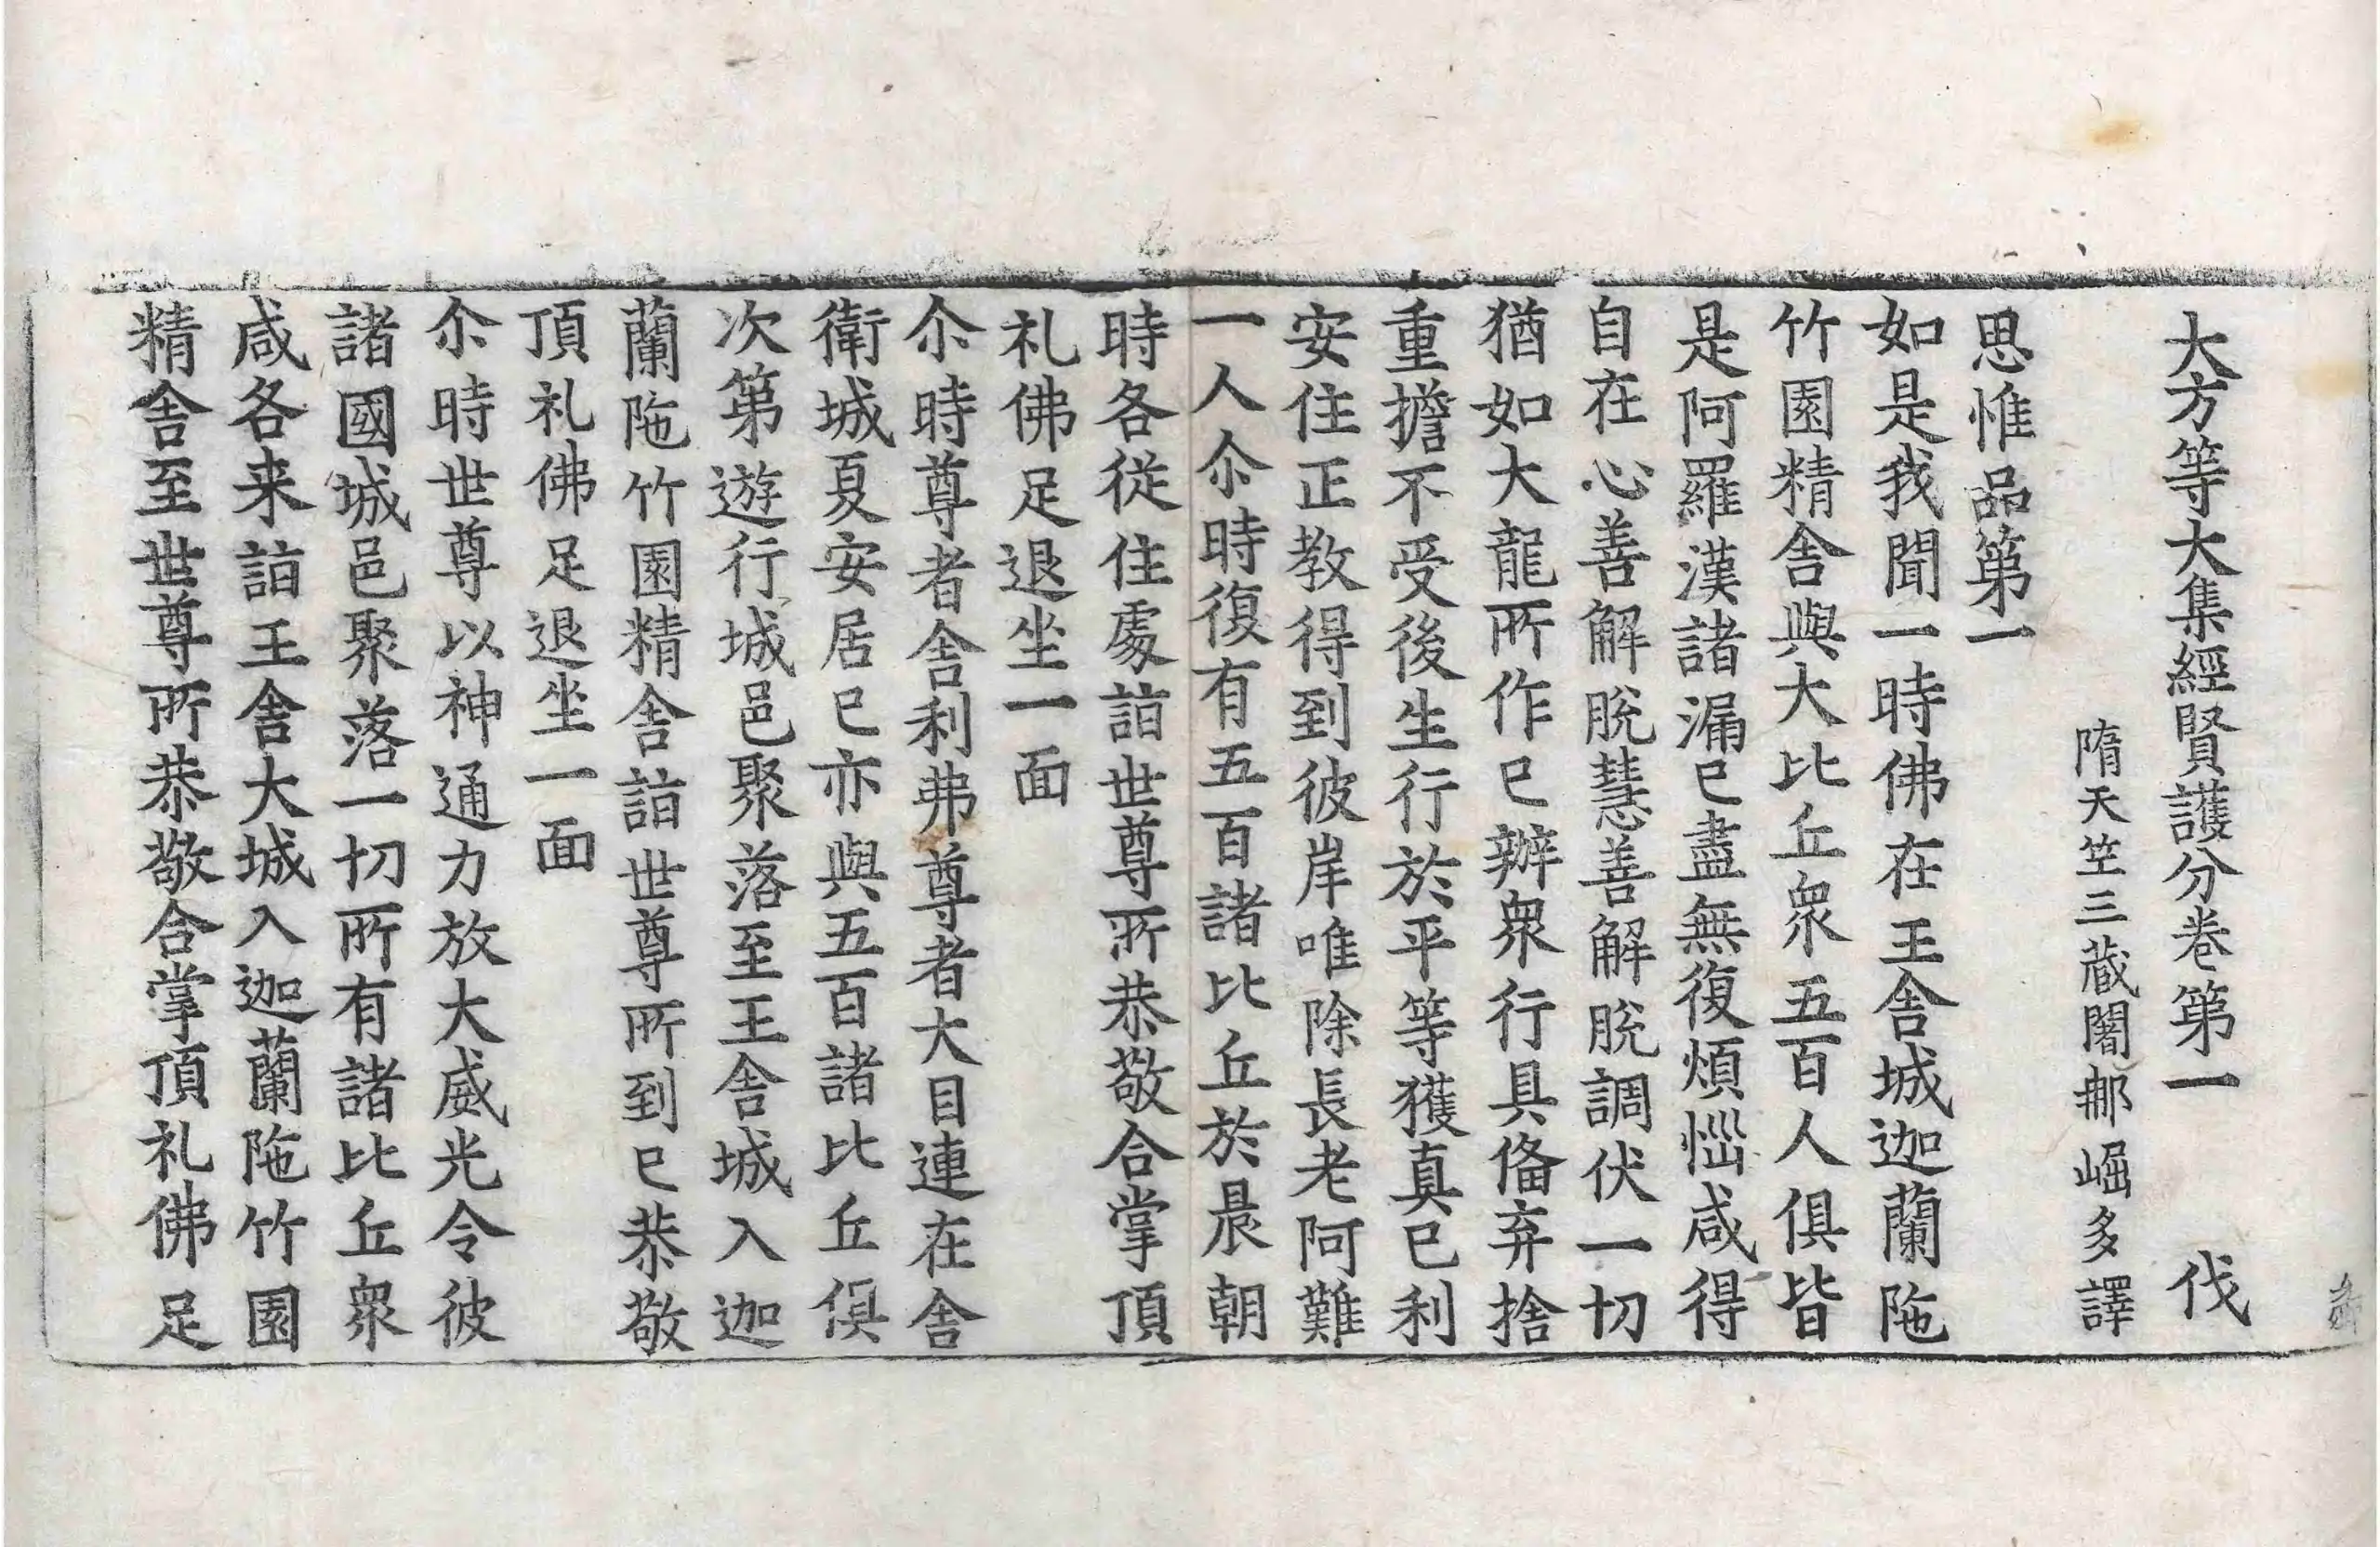 大方等大集經賢護分卷第一 伐
隋天笁三藏闍那崛多譯
思惟品第一
如是我聞一時佛在王舎城迦蘭陁
竹園精舎與大比丘衆五百人俱皆
是阿羅漢諸漏已盡無復煩惱咸得
自在心善解脫慧善解脫調伏一切
猶如大龍所作已辦衆行具俻弃捨
重擔不受後生行於平等獲真已利
安住正教得到彼岸唯除長老阿難
一人尒時復有五百諸比丘於晨朝
時各從住處詣世尊所恭敬合掌頂
礼佛足退坐一面
尒時尊者舎利弗尊者大目連在舎
衛城夏安居已亦與五百諸比丘俱
次第遊行城邑聚落至王舎城入迦
蘭陁竹園精舎詣世尊所到已恭敬
頂礼佛足退坐一面
尒時世尊以神通力放大威光令彼
諸國城邑聚落一切所有諸比丘衆
咸各来詣王舎大城入迦蘭陁竹園
精舎至世尊所恭敬合掌頂礼佛足